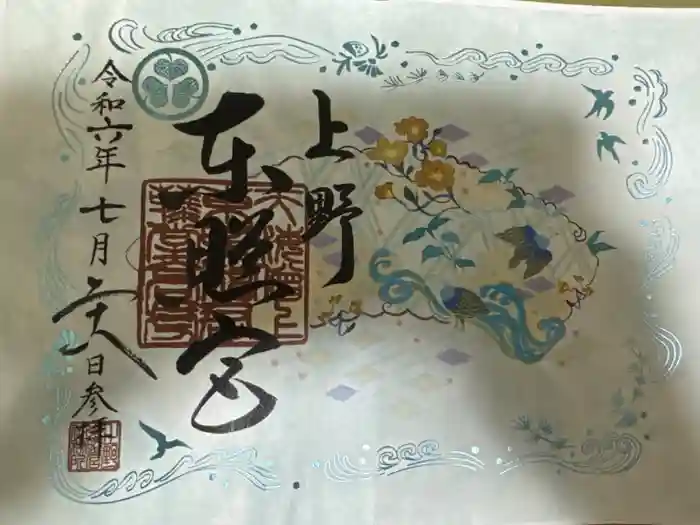 上野
東照宮
令和六年七月二十八日参拝